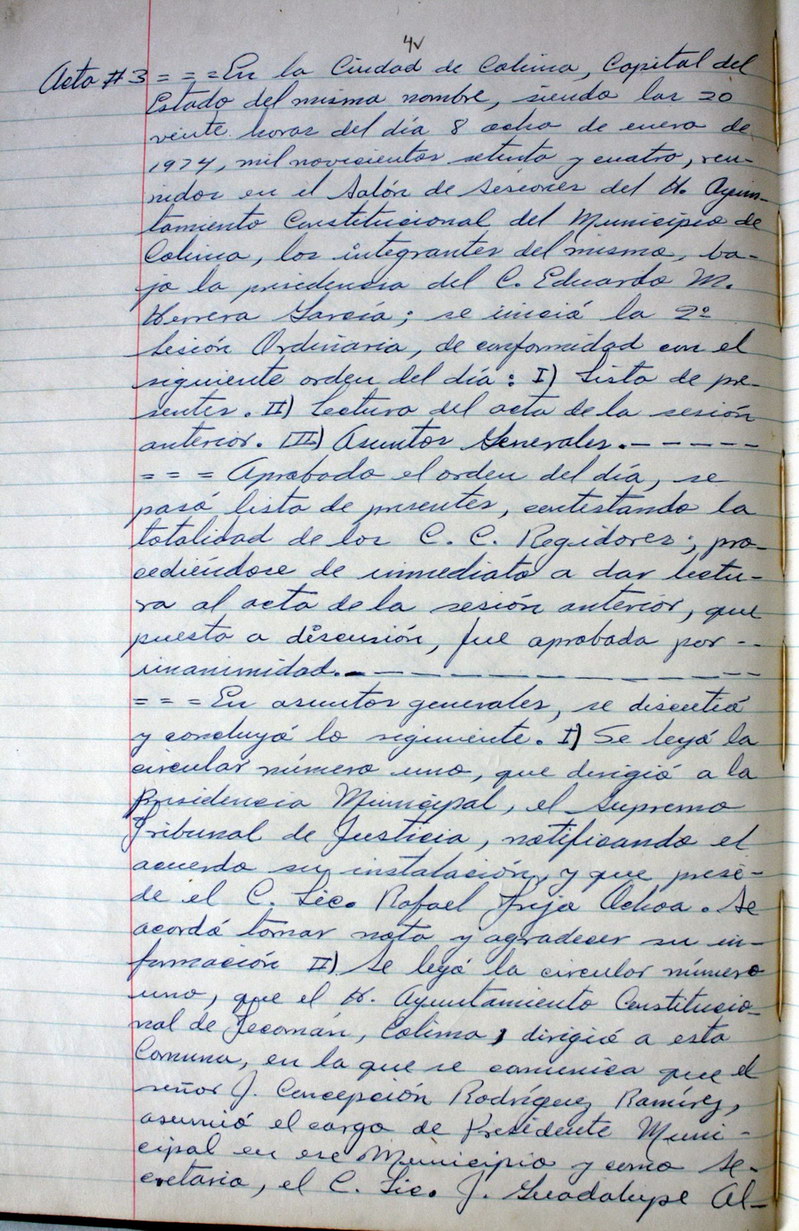 4v
Acta #3 = = = En la Ciudad de Colima, Capital del
Estado del mismo nombre, siendo las 20
veinte horas del día 8 ocho de enero de
1974, mil novicientos setenta y cuatro, reu-
nidos en el Salón de Sesiones del H. Ayun-
tamiento Constitucional del Municipio de
Colima, los integrantes del mismo, ba-
jo la presidencia del C. Eduardo M.
Herrera García; se inició la 2ª
Sesión Ordinaria, de conformidad con el
siguiente orden del día: I) Lista de pre-
sentes. II) Lectura del acta de la sesión
anterior. III) Asuntos Generales. - - - - -
= = = Aprobado el orden del día, se
pasó lista de presentes, contestando la
totalidad de los C. C. Regidores; pro-
cediéndose de inmediato a dar lectu-
ra al acta de la sesión anterior, que
puesta a discusión, fue aprobada por - -
unanimidad. - - - - - - - - - - - -
= = = En asuntos generales, se discutió
y concluyó lo siguiente. I) Se leyó la
circular número uno, que dirigió a la
Presidencia Municipal, el Supremo
Tribunal de Justicia, notificando el
acuerdo su instalación, y que presi-
de el C. Lic. Rafael Ochoa. Se
acordó tomar nota y agradecer su in-
formación II) Se leyó la circular número
uno, que el H. Ayuntamiento Constitucio-
nal de Tecomán, Colima, dirigió a esta
Comuna, en la que se comunica que el
señor J. Concepción Rodríguez Ramírez,
asumió el cargo de Presidente Muni-
cipal en ese Municipio y como Se-
cretario, el C. Lic. J. Guadalupe Al-